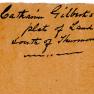 Catharin Gilbert's
plot of Land
South of Thurmon